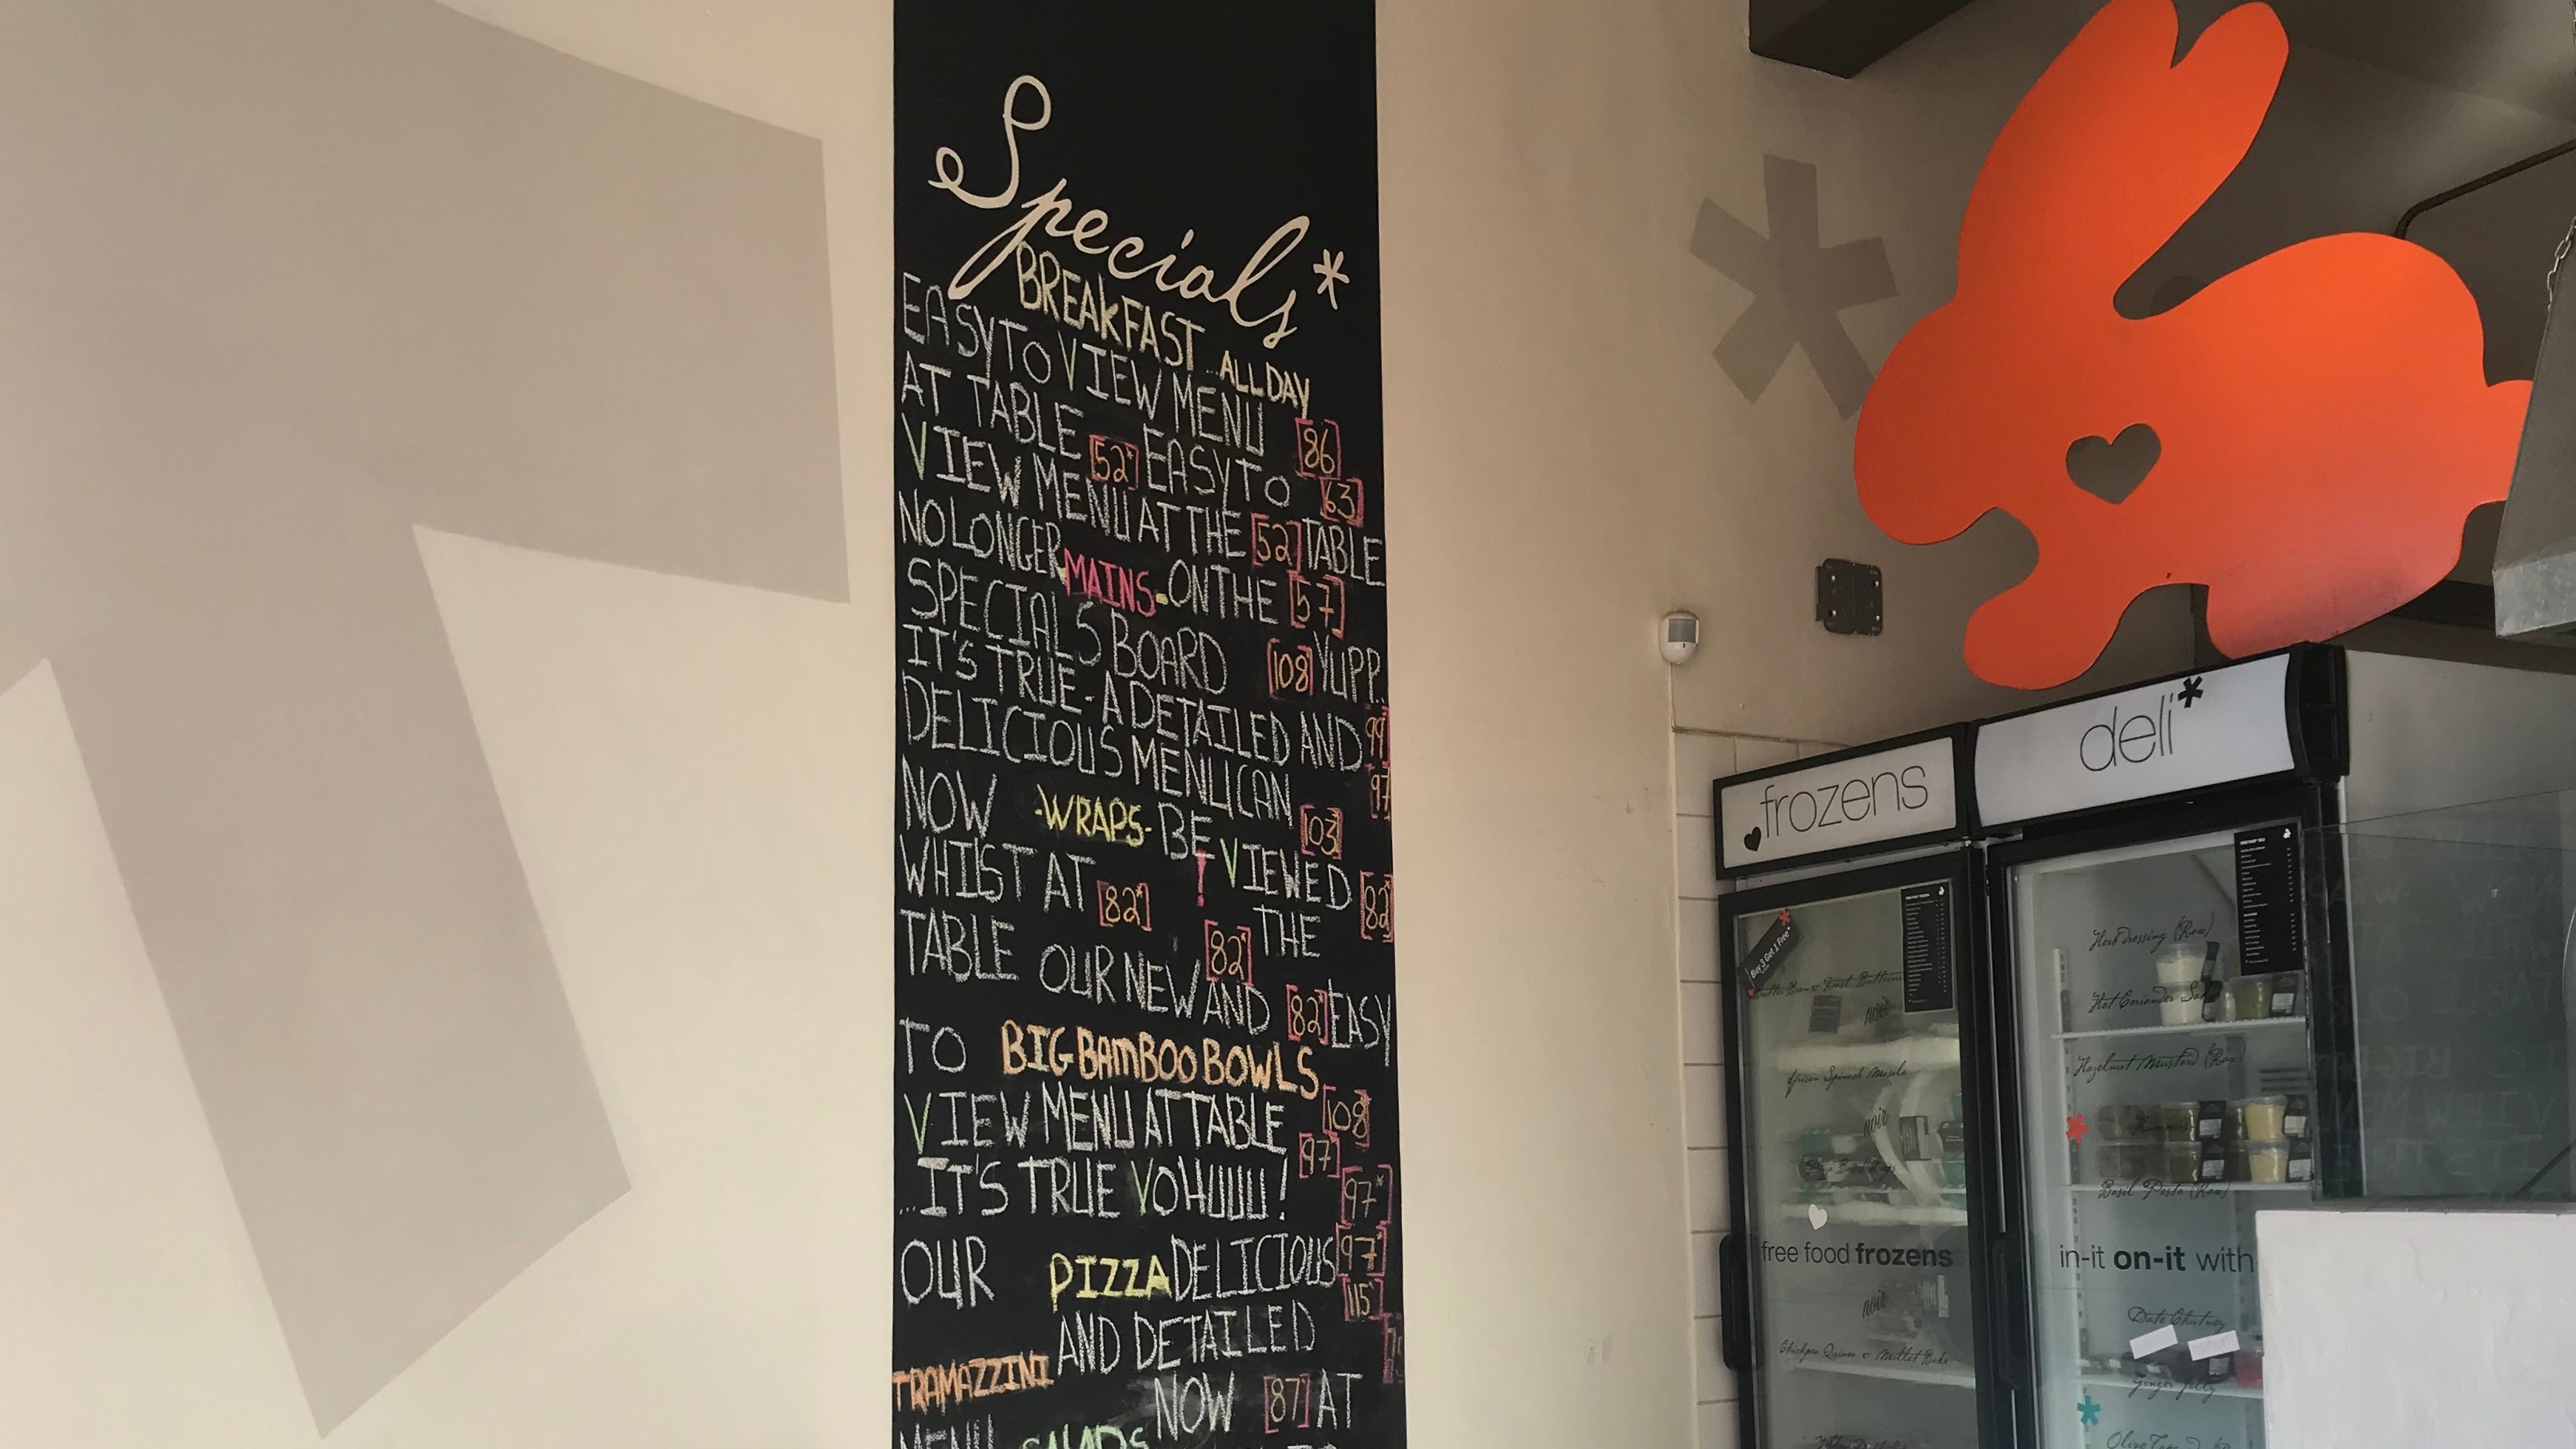 Specials*
BREAKFAST ...ALL DAY
EASY TO VIEW MENU [86]
AT TABLE [52*] EASY TO [63]
VIEW MENU AT THE [52] TABLE
NO LONGER MAINS - ON THE [57]
SPECIALS BOARD [108] YUPP..
IT'S TRUE - A DETAILED AND [99]
DELICIOUS MENU CAN [97]
NOW -WRAPS- BE VIEWED [103]
WHILST AT [82*] ! THE [82]
TABLE OUR NEW [82*] AND [82*] EASY
TO BIG BAMBOO BOWLS
VIEW MENU AT TABLE [108]
...IT'S TRUE YOHUUU! [97] [97*]
OUR PIZZA DELICIOUS [97*]
AND DETAILED [115*]
TRAMAZZINI NOW [87] AT
MENU SALADS
frozens
deli*
Buy 3 Get 1 Free*
noir
African Spinach Masala
noir
free food frozens
noir
Chickpea Quinoa & Millet Bake
Herb dressing (Raw)
Hot Coriander
Hazelnut Mustard (Raw)
Hummus
Basil Pesto (Raw)
in-it on-it with
Date Chutney
Ginger Jelly